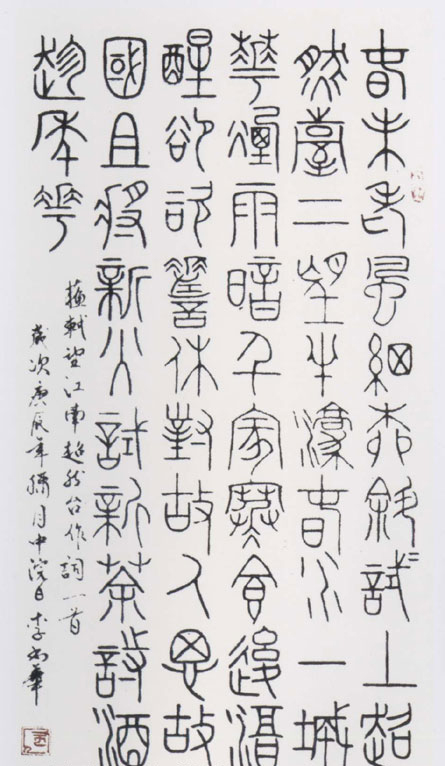 春未老風細柳斜〻試上超
然臺上望半濠春水一城
華煙雨暗千家寒食後酒
醒卻咨嗟休對故人思故
國且將新火試新茶詩酒
趁年華
蘇軾望江南超然台作詞一首
歲次庚辰年臘月中浣日李華